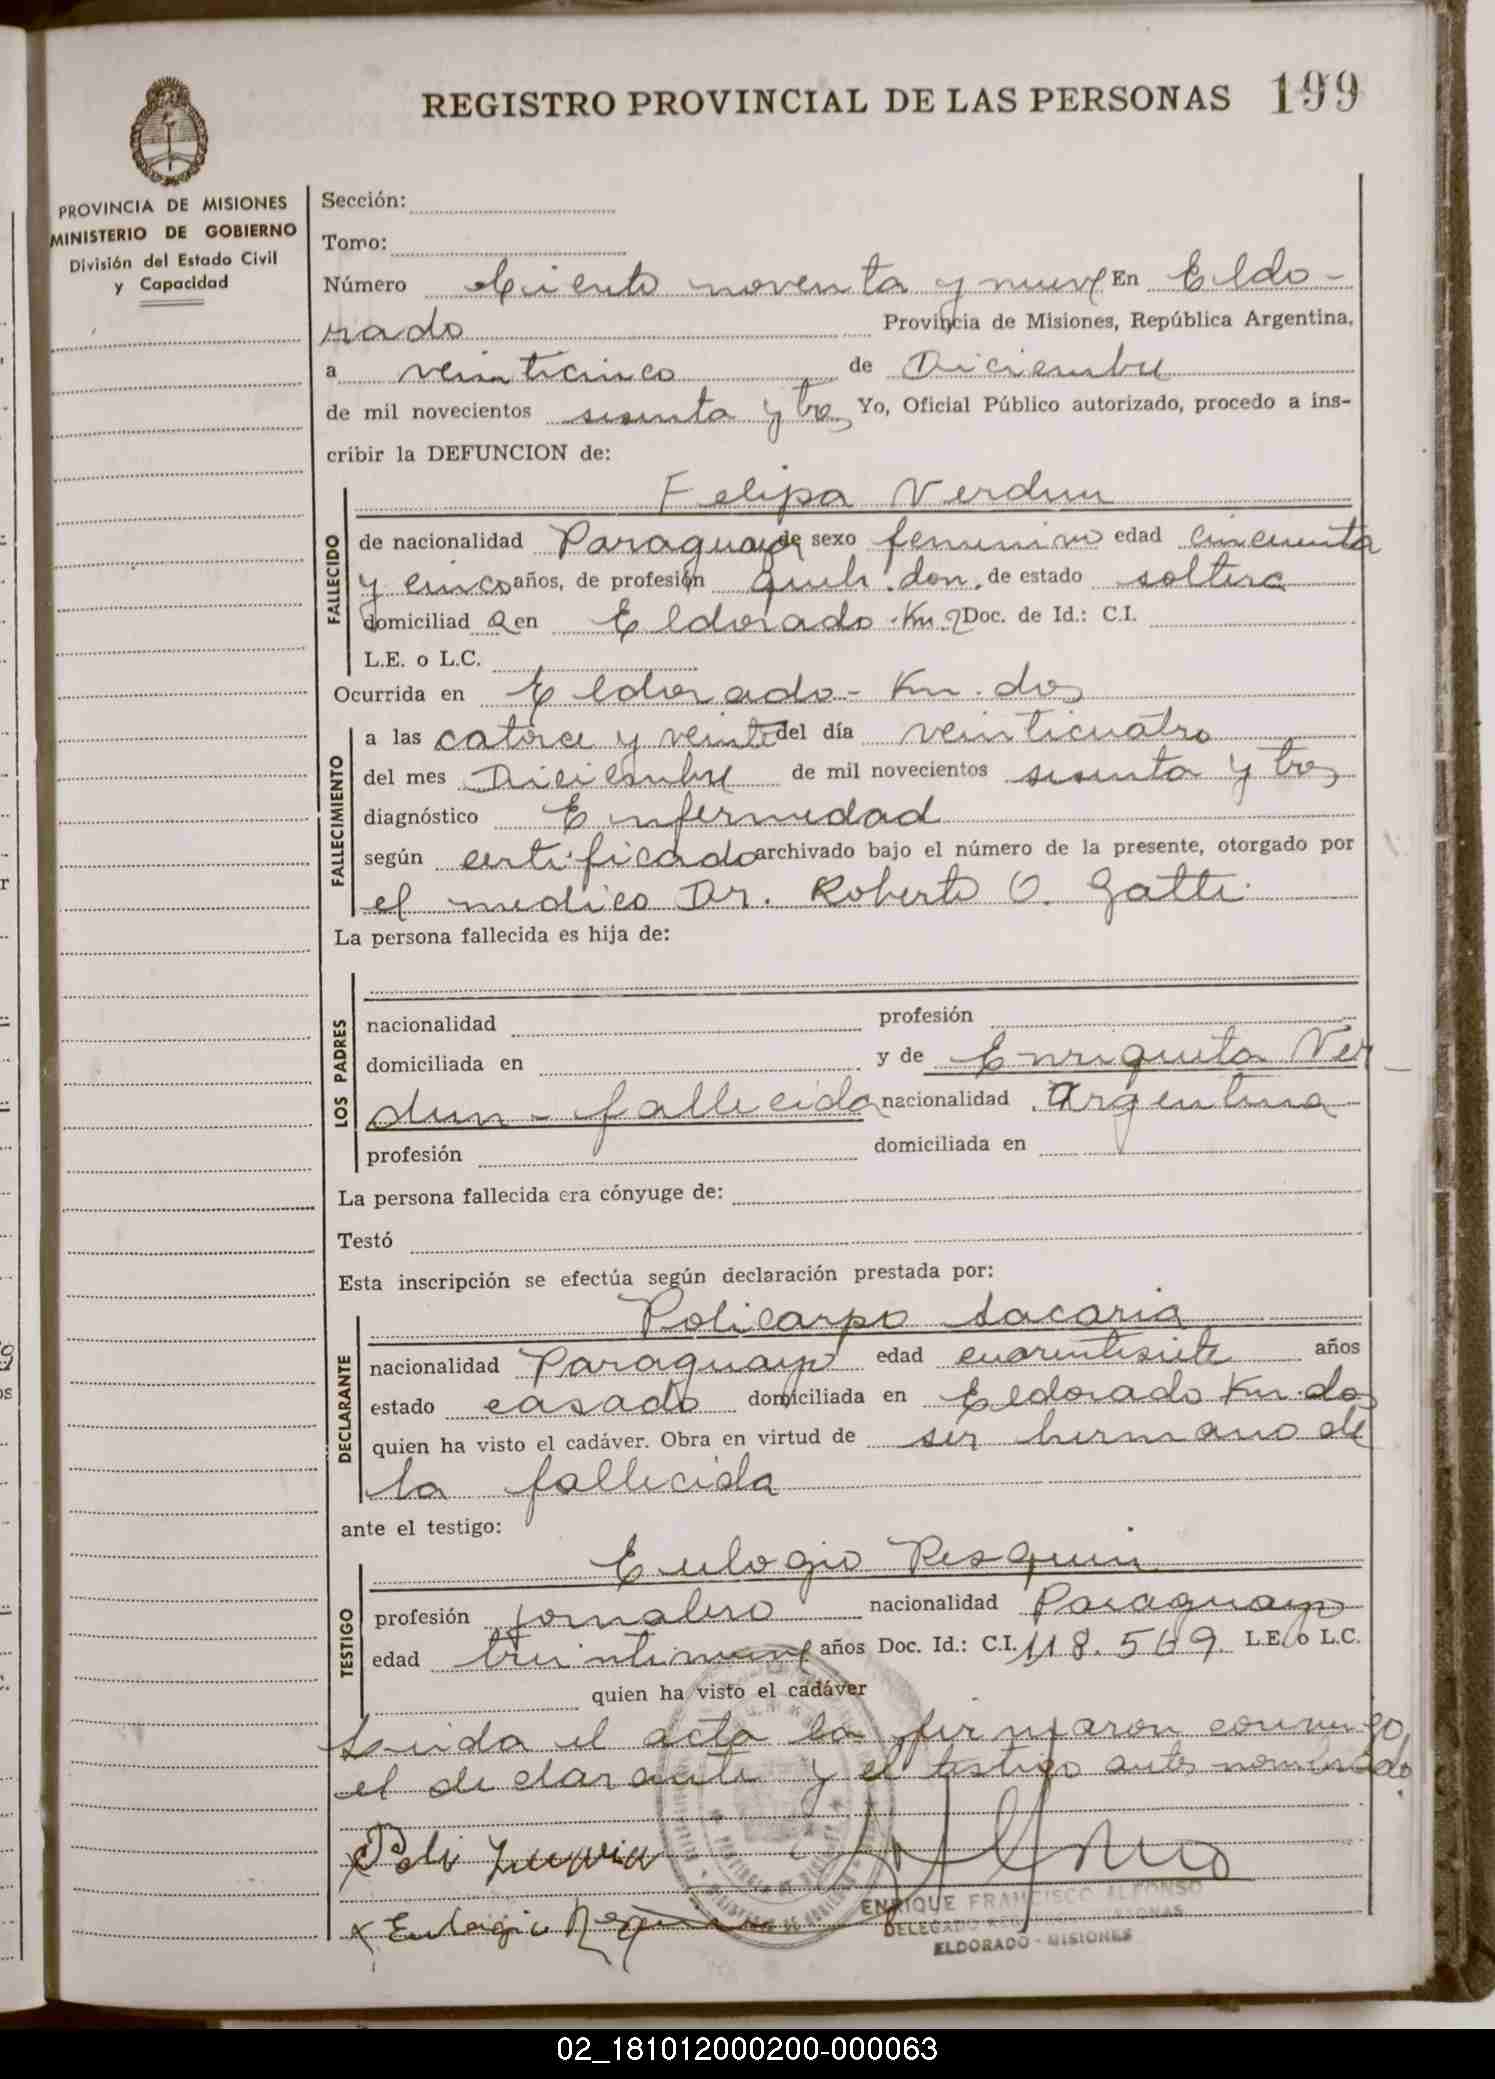 REGISTRO PROVINCIAL DE LAS PERSONAS 199
PROVINCIA DE MISIONES
MINISTERIO DE GOBIERNO
División del Estado Civil
y Capacidad
Sección:
Tomo:
Número Ciento noventa y nueve En Eldo-
rado Provincia de Misiones, República Argentina,
a veinticinco de Diciembre
de mil novecientos sesenta y tres Yo, Oficial Público autorizado, procedo a ins-
cribir la DEFUNCION de:
Felipa Verdun
FALLECIDO
de nacionalidad Paraguaya de sexo femenino edad cincuenta
y cinco años, de profesión queh. dom. de estado soltera
domiciliad a en Eldorado Km. 2 Doc. de Id.: C.I.
L.E. o L.C.
Ocurrida en Eldorado - Km. dos
FALLECIMIENTO
a las catorce y veinte del día veinticuatro
del mes Diciembre de mil novecientos sesenta y tres
diagnóstico Enfermedad
según certificado archivado bajo el número de la presente, otorgado por
el medico Dr. Roberto O. Gatti.
La persona fallecida es hija de:
LOS PADRES
nacionalidad profesión
domiciliada en y de Enriqueta Ver
dun - fallecida nacionalidad Argentina
profesión domiciliada en
La persona fallecida era cónyuge de:
Testó
Esta inscripción se efectúa según declaración prestada por:
Policarpo Sacaria
DECLARANTE
nacionalidad Paraguayo edad cuarentisiete años
estado casado domiciliada en Eldorado Km. dos
quien ha visto el cadáver. Obra en virtud de ser hermano de
la fallecida
ante el testigo:
Eulogio Resquin
TESTIGO
profesión jornalero nacionalidad Paraguayo
edad treintinueve años Doc. Id.: C.I. 118.569 L.E. o L.C.
quien ha visto el cadáver
Leida el acta la firmaron conmigo
el declarante y el testigo antes nombrado.
x Poli
x Eulogio Resquin
ENRIQUE FRANCISCO ALFONSO
DELEGADO PERSONAS
ELDORADO - MISIONES
02_181012000200-000063